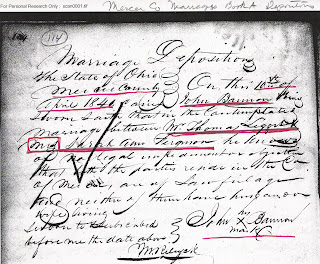 For Personal Research Only : scan0001.tif
Mercer Co Marriages Book A Depositions
114
Marriage Deposition
The State of Ohio
Mercer County
On this 10th of
April 1840 came John Bannon &
Sworn Saith that in the Contemplated
marriage between Mr Thomas
Mrs Ann Ferguson he knows
of no legal impediment or objection
that both the parties reside in the Co
of Mercer, are of Lawful age
and neither of them have
wife living
Sworn to & Subscribed
before me the date above
John X Bannon
mark